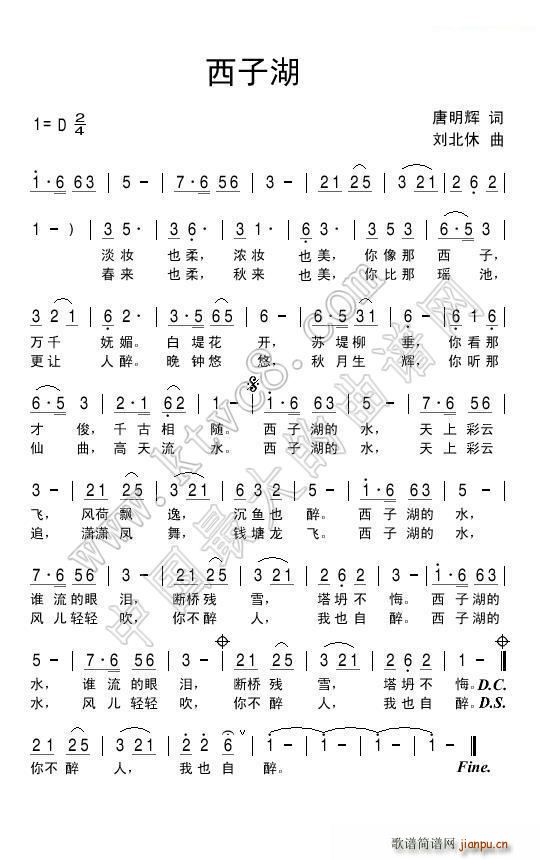 西子湖
1=D 2/4
唐明辉 词
刘北休 曲
1·6 63 | 5 - | 7·6 56 | 3 - | 21 25 | 3 21 | 2 6 2 |
1 - ) | 3 5· | 6 3· | 3 1· | 6 3· | 3 5 3 | 6·5 3 |
淡妆 也柔, 浓妆 也美, 你像那 西子,
春来 也柔, 秋来 也美, 你比那 瑶池,
3 2 1 | 6 2· | 3·5 65 | 6 - | 3·5 21 | 6 - | 6 1 6 |
万千 妩媚。 白堤花 开, 苏堤柳 垂, 你看那
更让 人醉。 晚钟悠 悠, 秋月生 辉, 你听那
6·5 3 | 2·1 62 | 1 - | 1·6 63 | 5 - | 7·6 56 |
才俊, 千古相 随。 西子湖的 水, 天上彩云
仙曲, 高天流 水。 西子湖的 水, 天上彩云
3 - | 21 25 | 3 - | 21 23 | 5 - | 1·6 63 | 5 - |
飞, 风荷飘 逸, 沉鱼也 醉。 西子湖的 水,
追, 潇潇凤 舞, 钱塘龙 飞。 西子湖的 水,
7·6 56 | 3 - | 21 25 | 3 21 | 2 6 2 | 3 - | 1·6 63 |
谁流的眼 泪, 断桥残 雪, 塔坍不 悔。 西子湖的
风儿轻轻 吹, 你不醉 人, 我也自 醉。 西子湖的
5 - | 7·6 56 | 3 - | 21 25 | 3 21 | 2 6 2 | 1 - ‖
水, 谁流的眼 泪, 断桥残 雪, 塔坍不 悔。 D.C.
水, 风儿轻轻 吹, 你不醉 人, 我也自 醉。 D.S.
21 25 | 3 21 | 2 2 6 | 1 - | 1 - | 1 - | 1 - ‖
你不醉 人, 我也自 醉。 Fine.
www.ktvc8.com
中国最大的曲谱网
歌谱简谱网
jianpu.cn